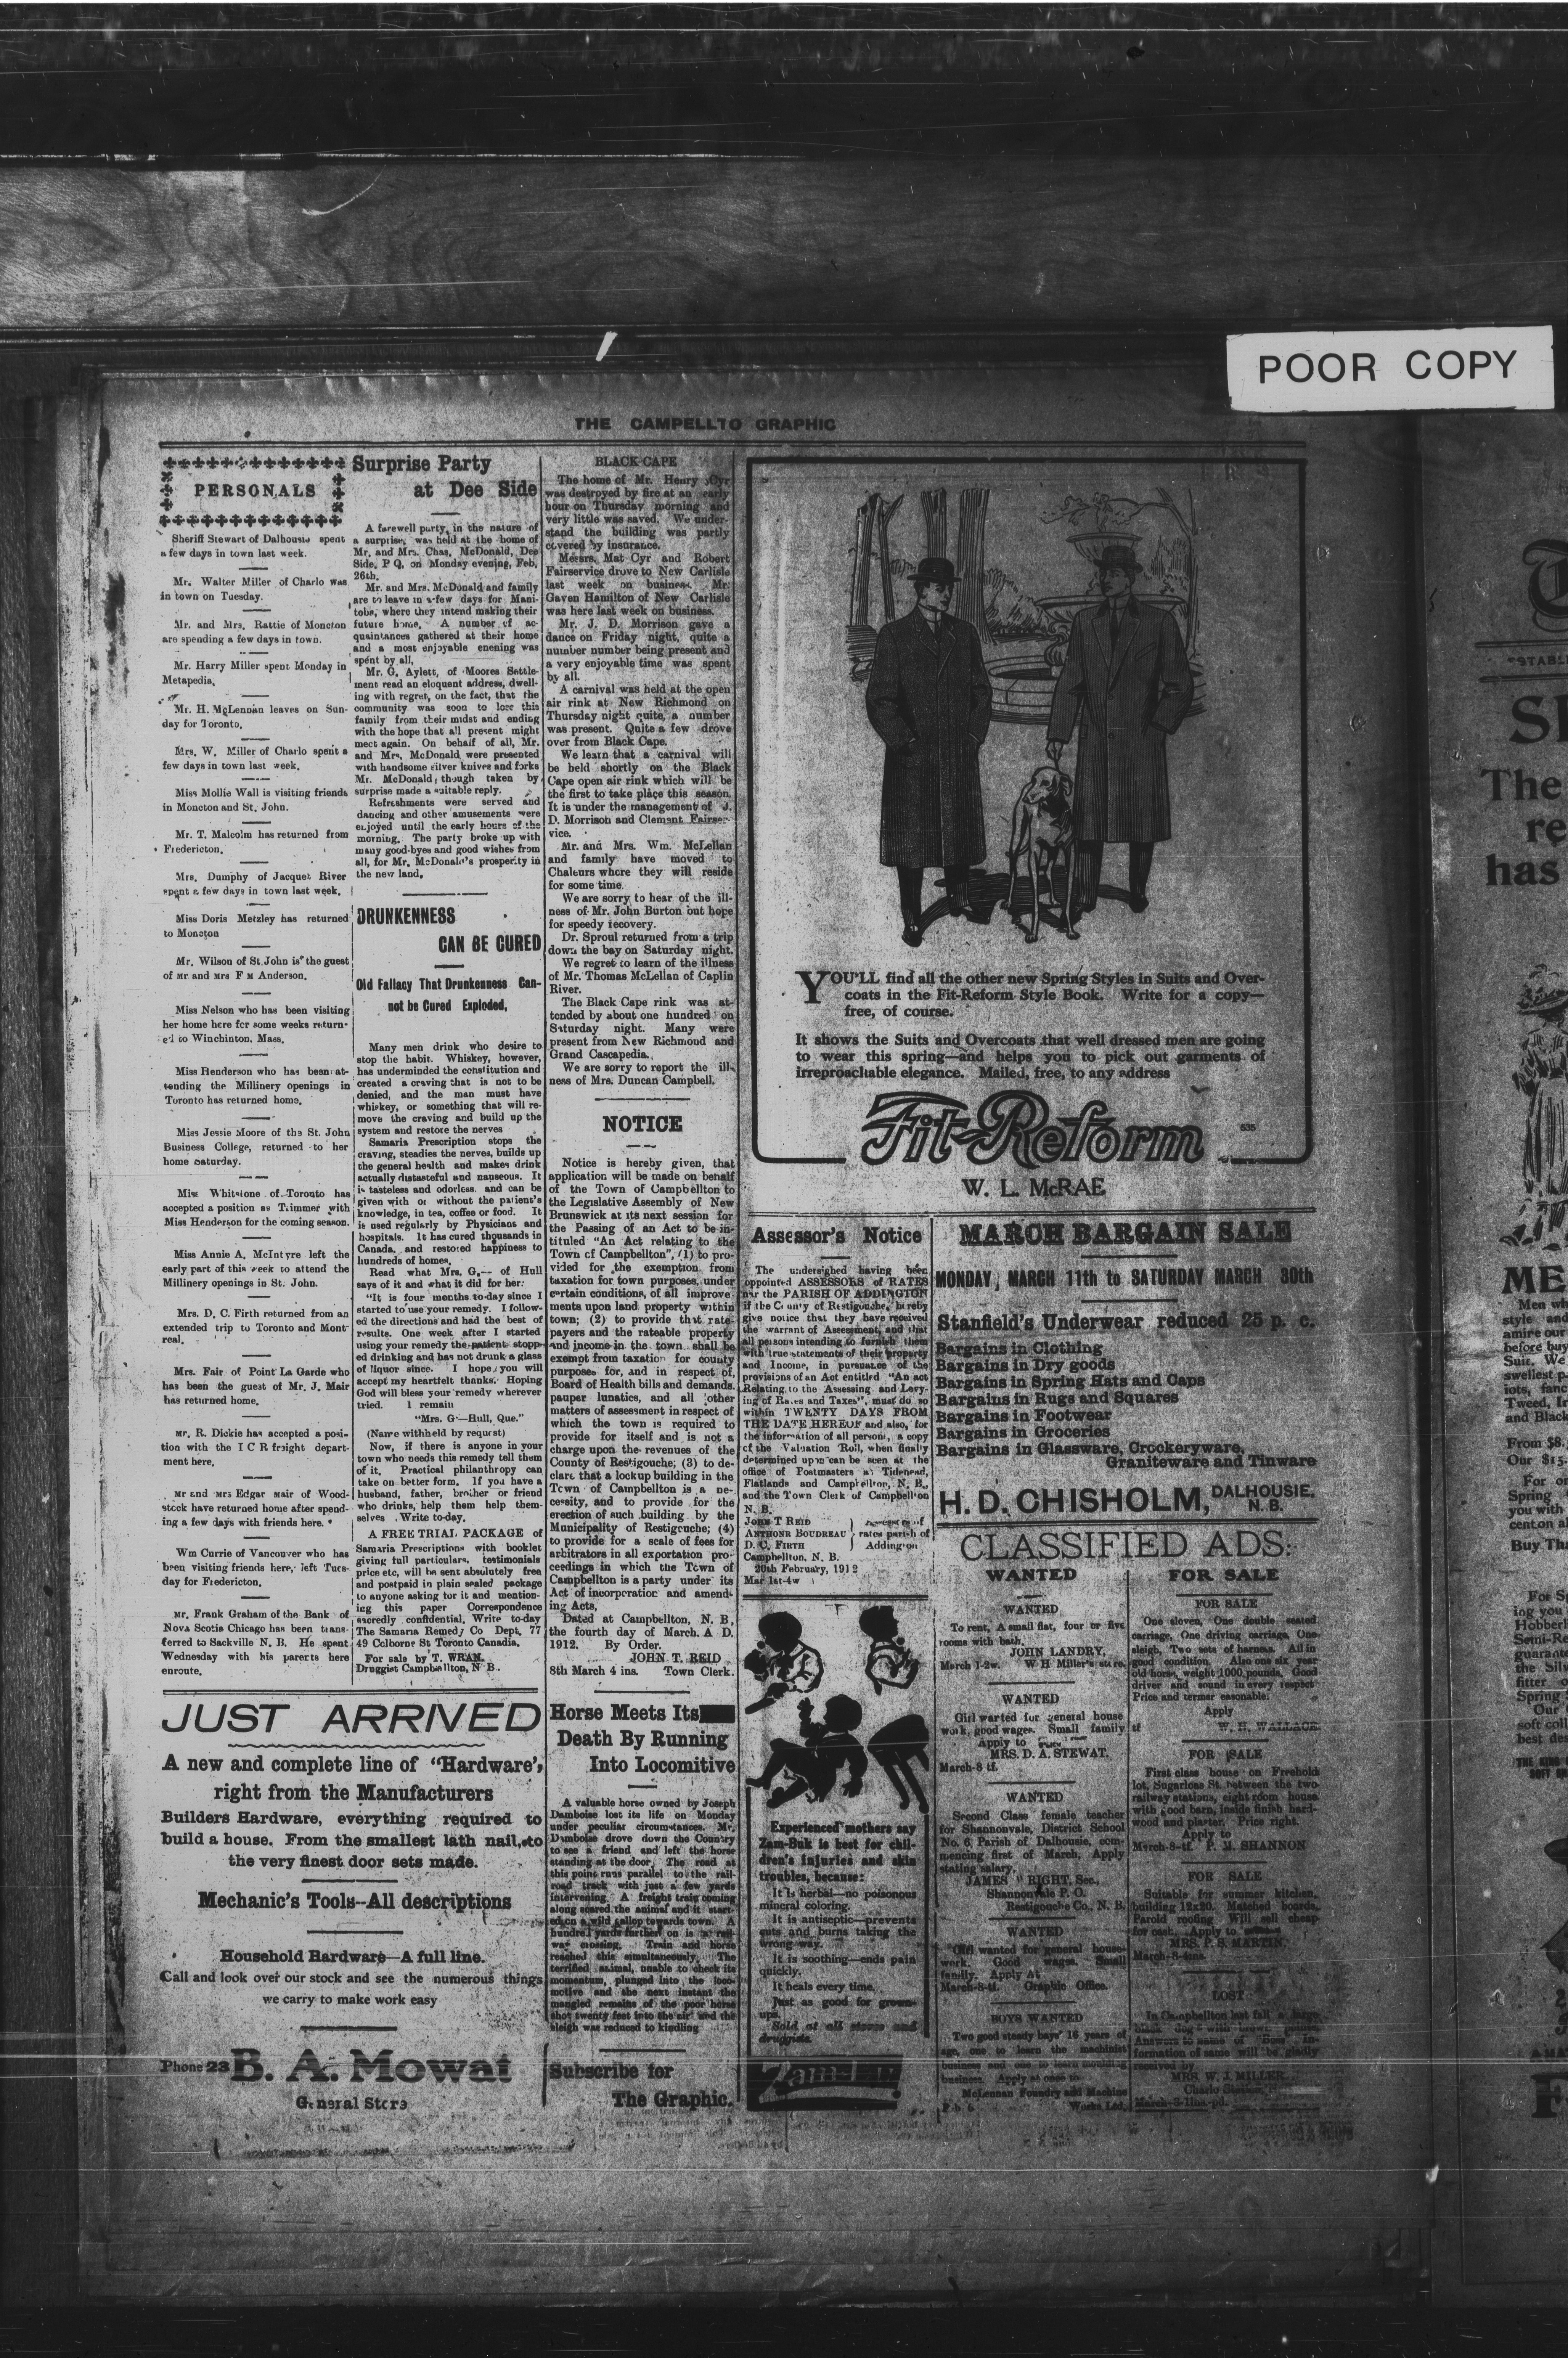 POOR COPY
THE CAMPELLTO GRAPHIC
PERSONALS
Sheriff Stewart of Dalhousie spent
a few days in town last week.
Mr. Walter Miller of Charlo was
in town on Tuesday.
Mr. and Mrs. Rattie of Moncton
are spending a few days in town.
Mr. Harry Miller spent Monday in
Metapedia,
Mr. H. McLennan leaves on Sun-
day for Toronto.
Mrs. W. Miller of Charlo spent a
few days in town last week.
Miss Mollie Wall is visiting friends
in Moncton and St. John.
Mr. T. Malcolm has returned from
Fredericton.
Mrs. Dumphy of Jacquet River
spent a few days in town last week.
Miss Doris Metzley has returned
to Moncton
Mr. Wilson of St. John is the guest
of Mr and Mrs F M Anderson.
Miss Nelson who has been visiting
her home here for some weeks return-
ed to Winchinton. Mass.
Miss Henderson who has been at-
tending the Millinery openings in
Toronto has returned home.
Miss Jessie Moore of the St. John
Business College, returned to her
home Saturday.
Miss Whitstone of Toronto has
accepted a position as Trimmer with
Miss Henderson for the coming season.
Miss Annie A. McIntyre left the
early part of this week to attend the
Millinery openings in St. John.
Mrs. D. C. Firth returned from an
extended trip to Toronto and Mont-
real.
Mrs. Fair of Point La Garde who
has been the guest of Mr. J. Mair
has returned home.
Mr. R. Dickie has accepted a posi-
tion with the I C R freight depart-
ment here.
Mr and Mrs Edgar Mair of Wood-
stock have returned home after spend-
ing a few days with friends here.
Wm Currie of Vancouver who has
been visiting friends here, left Tues-
day for Fredericton.
Mr. Frank Graham of the Bank of
Nova Scotia Chicago has been trans-
ferred to Sackville N. B. He spent
Wednesday with his parents here
enroute.
Surprise Party
at Dee Side
A farewell party, in the nature of
a surprise, was held at the home of
Mr. and Mrs. Chas. McDonald, Dee
Side, P Q, on Monday evening, Feb,
26th.
Mr. and Mrs. McDonald and family
are to leave in a few days for Mani-
toba, where they intend making their
future home. A number of ac-
quaintances gathered at their home
and a most enjoyable enening was
spent by all,
Mr. G. Aylett, of Moores Settle-
ment read an eloquent address, dwell-
ing with regret, on the fact, that the
community was soon to lose this
family from their midst and ending
with the hope that all present might
meet again. On behalf of all, Mr.
and Mrs. McDonald were presented
with handsome silver knives and forks
Mr. McDonald, though taken by
surprise made a suitable reply.
Refreshments were served and
dancing and other amusements were
enjoyed until the early hours of the
morning. The party broke up with
many good-byes and good wishes from
all, for Mr. McDonald's prosperity in
the new land,
DRUNKENNESS
CAN BE CURED
Old Fallacy That Drunkenness Can-
not be Cured Exploded,
Many men drink who desire to
stop the habit. Whiskey, however,
has underminded the constitution and
created a craving that is not to be
denied, and the man must have
whiskey, or something that will re-
move the craving and build up the
system and restore the nerves
Samaria Prescription stops the
craving, steadies the nerves, builds up
the general health and makes drink
actually distasteful and nauseous. It
is tasteless and odorless. and can be
given with or without the patient's
knowledge, in tea, coffee or food. It
is used regularly by Physicians and
hospitals. It has cured thousands in
Canada, and restored happiness to
hundreds of homes.
Read what Mrs. G.-- of Hull
says of it and what it did for her:
"It is four months to-day since I
started to use your remedy. I follow-
ed the directions and had the best of
results. One week after I started
using your remedy the patient stopp-
ed drinking and has not drunk a glass
of liquor since. I hope you will
accept my heartfelt thanks. Hoping
God will bless your remedy wherever
tried. I remain
"Mrs. G—Hull, Que."
(Name withheld by request)
Now, if there is anyone in your
town who needs this remedy tell them
of it. Practical philanthropy can
take on better form. If you have a
husband, father, brother or friend
who drinks, help them help them-
selves Write to-day.
A FREE TRIAL PACKAGE of
Samaria Prescriptions with booklet
giving full particulars, testimonials
price etc, will be sent absolutely free
and postpaid in plain sealed package
to anyone asking for it and mention-
ing this paper Correspondence
sacredly confidential, Write to-day
The Samaria Remedy Co Dept, 77
49 Colborne St Toronto Canada.
For sale by T. WRAN.
Druggist Campbellton, N B.
JUST ARRIVED
A new and complete line of "Hardware',
right from the Manufacturers
Builders Hardware, everything required to
build a house. From the smallest lath nail, to
the very finest door sets made.
Mechanic's Tools--All descriptions
Household Hardware—A full line.
Call and look over our stock and see the numerous things
we carry to make work easy
Phone 23 B. A. Mowat
General Store
BLACK CAPE
The home of Mr. Henry Cyr
was destroyed by fire at an early
hour on Thursday morning and
very little was saved. We under-
stand the building was partly
covered by insurance.
Messrs. Mat Cyr and Robert
Fairservice drove to New Carlisle
last week on business. Mr.
Gaven Hamilton of New Carlisle
was here last week on business.
Mr. J. D. Morrison gave a
dance on Friday night, quite a
number number being present and
a very enjoyable time was spent
by all.
A carnival was held at the open
air rink at New Richmond on
Thursday night quite, a number
was present. Quite a few drove
over from Black Cape.
We learn that a carnival will
be held shortly on the Black
Cape open air rink which will be
the first to take place this season.
It is under the management of J.
D. Morrison and Clement Fairser-
vice.
Mr. and Mrs. Wm. McLellan
and family have moved to
Chaleurs where they will reside
for some time.
We are sorry to hear of the ill-
ness of Mr. John Burton out hope
for speedy recovery.
Dr. Sproul returned from a trip
down the bay on Saturday night.
We regret to learn of the illness
of Mr. Thomas McLellan of Caplin
River.
The Black Cape rink was at-
tended by about one hundred on
Saturday night. Many were
present from New Richmond and
Grand Cascapedia.
We are sorry to report the ill-
ness of Mrs. Duncan Campbell.
NOTICE
Notice is hereby given, that
application will be made on behalf
of the Town of Campbellton to
the Legislative Assembly of New
Brunswick at its next session for
the Passing of an Act to be in-
tituled "An Act relating to the
Town of Campbellton", (1) to pro-
vided for the exemption from
taxation for town purposes, under
certain conditions, of all improve-
ments upon land property within
town; (2) to provide that rate-
payers and the rateable property
and income in the town shall be
exempt from taxation for county
purposes for, and in respect of,
Board of Health bills and demands,
pauper lunatics, and all other
matters of assessment in respect of
which the town is required to
provide for itself and is not a
charge upon the revenues of the
County of Restigouche; (3) to de-
clare that a lockup building in the
Town of Campbellton is a ne-
cessity, and to provide for the
erection of such building by the
Municipality of Restigouche; (4)
to provide for a scale of fees for
arbitrators in all exportation pro-
ceedings in which the Town of
Campbellton is a party under its
Act of incorporation and amend-
ing Acts,
Dated at Campbellton, N. B,
the fourth day of March. A D.
1912. By Order.
JOHN T. REID
8th March 4 ins. Town Clerk.
Horse Meets Its
Death By Running
Into Locomitive
A valuable horse owned by Joseph
Damboise lost its life on Monday
under peculiar circumstances. Mr.
Damboise drove down the Country
to see a friend and left the horse
standing at the door. The road at
this point runs parallel to the rail-
road track with just a few yards
intervening. A freight train coming
along scared the animal and it start-
ed on a wild gallop towards town. A
hundred yards further on is a rail-
way crossing. Train and horse
reached this simultaneously. The
terrified animal, unable to check its
momentum, plunged into the loco-
motive and the next instant the
mangled remains of the poor horse
shot twenty feet into the air and the
sleigh was reduced to kindling
Subscribe for
The Graphic.
YOU'LL find all the other new Spring Styles in Suits and Over-
coats in the Fit-Reform Style Book. Write for a copy—
free, of course.
It shows the Suits and Overcoats that well dressed men are going
to wear this spring—and helps you to pick out garments of
irreproachable elegance. Mailed, free, to any address
Fit-Reform
635
W. L. McRAE
Assessor's Notice
The undersighed having been
appointed ASSESSORS of RATES
for the PARISH OF ADDINGTON
if the County of Restigouche, hereby
give notice that they have received
the warrant of Assessment, and that
all persons intending to furnish them
with true statements of their property
and Income, in pursuance of the
provisions of an Act entitled "An act
Relating to the Assessing and Levy-
ing of Rates and Taxes", must do so
within TWENTY DAYS FROM
THE DATE HEREOF and also, for
the information of all persons, a copy
of the Valuation Roll, when finally
determined upon can be seen at the
office of Postmasters at Tidehead,
Flatlands and Campbellton, N. B.,
and the Town Clerk of Campbellton
N. B.
JOHN T REID Assessors of
ANTHONR BOUDREAU rates parish of
D. C. FIRTH Addington
Campbellton, N. B.
20th February, 1912
Mar 1st-4w
Experienced mothers say
Zam-Buk is best for chil-
dren's injuries and skin
troubles, because:
It is herbal—no poisonous
mineral coloring.
It is antiseptic—prevents
cuts and burns taking the
wrong way.
It is soothing—ends pain
quickly.
It heals every time.
Just as good for grown-
ups.
Sold at all stores and
druggists.
Zam-Buk
MARCH BARGAIN SALE
MONDAY, MARCH 11th to SATURDAY MARCH 30th
Stanfield's Underwear reduced 25 p. c.
Bargains in Clothing
Bargains in Dry goods
Bargains in Spring Hats and Caps
Bargains in Rugs and Squares
Bargains in Footwear
Bargains in Groceries
Bargains in Glassware, Crockeryware,
Graniteware and Tinware
H. D. CHISHOLM, DALHOUSIE, N. B.
CLASSIFIED ADS:
WANTED
WANTED
To rent, A small flat, four or five
rooms with bath.
JOHN LANDRY,
March 1-2w. W H Miller's store.
WANTED
Girl wanted for general house
work, good wages. Small family
Apply to
MRS. D. A. STEWAT.
March-8 tf.
WANTED
Second Class female teacher
for Shannonvale, District School
No. 6, Parish of Dalhousie, com-
mencing first of March, Apply
stating salary,
JAMES RIGHT, Sec.,
Shannonvale P. O.
Restigouche Co., N. B.
WANTED
Girl wanted for general house-
work. Good wages. Small
family. Apply At
March-8-tf. Graphic Office.
BOYS WANTED
Two good steady boys' 16 years of
age, one to learn the machinist
business and one to learn moulding
business. Apply at once to
McLennan Foundry and Machine
Works Ltd.
FOR SALE
FOR SALE
One sloven, One double seated
carriage, One driving carriage, One
sleigh, Two sets of harness. All in
good condition. Also one six year
old horse, weight 1000 pounds. Good
driver and sound in every respect
Price and termer easonable.
Apply
tf W. H. WALLACE
FOR SALE
First class house on Freehold
lot, Sugarloaf St. between the two
railway stations, eight room house
with good barn, inside finish hard-
wood and plaster. Price right.
Apply to
March-8-tf. P. M. SHANNON
FOR SALE
Suitable for summer kitchen,
building 12x20. Matched boards,
Parold roofing Will sell cheap
for cash. Apply to
MRS. P. S. MARTIN.
March-8-4ins.
LOST
In Campbellton last fall a large
black dog with brown points
Answers to name of in-
formation of same will be gladly
received by
MRS. W. J. MILLER,
Charlo Station
March-8-1ins-pd.
The
re
has
ME
Men wh
style and
amire our
before buy
Suit. We
swellest p
iots, fanc
Tweed, Ir
and Black
From $8.
Our $15.
For or
Spring
you with
cent on al
Buy Tha
For Sp
ing you
Hobberl
Semi-Re
guarante
the Silv
fitter o
Spring
Our
soft coll
best des